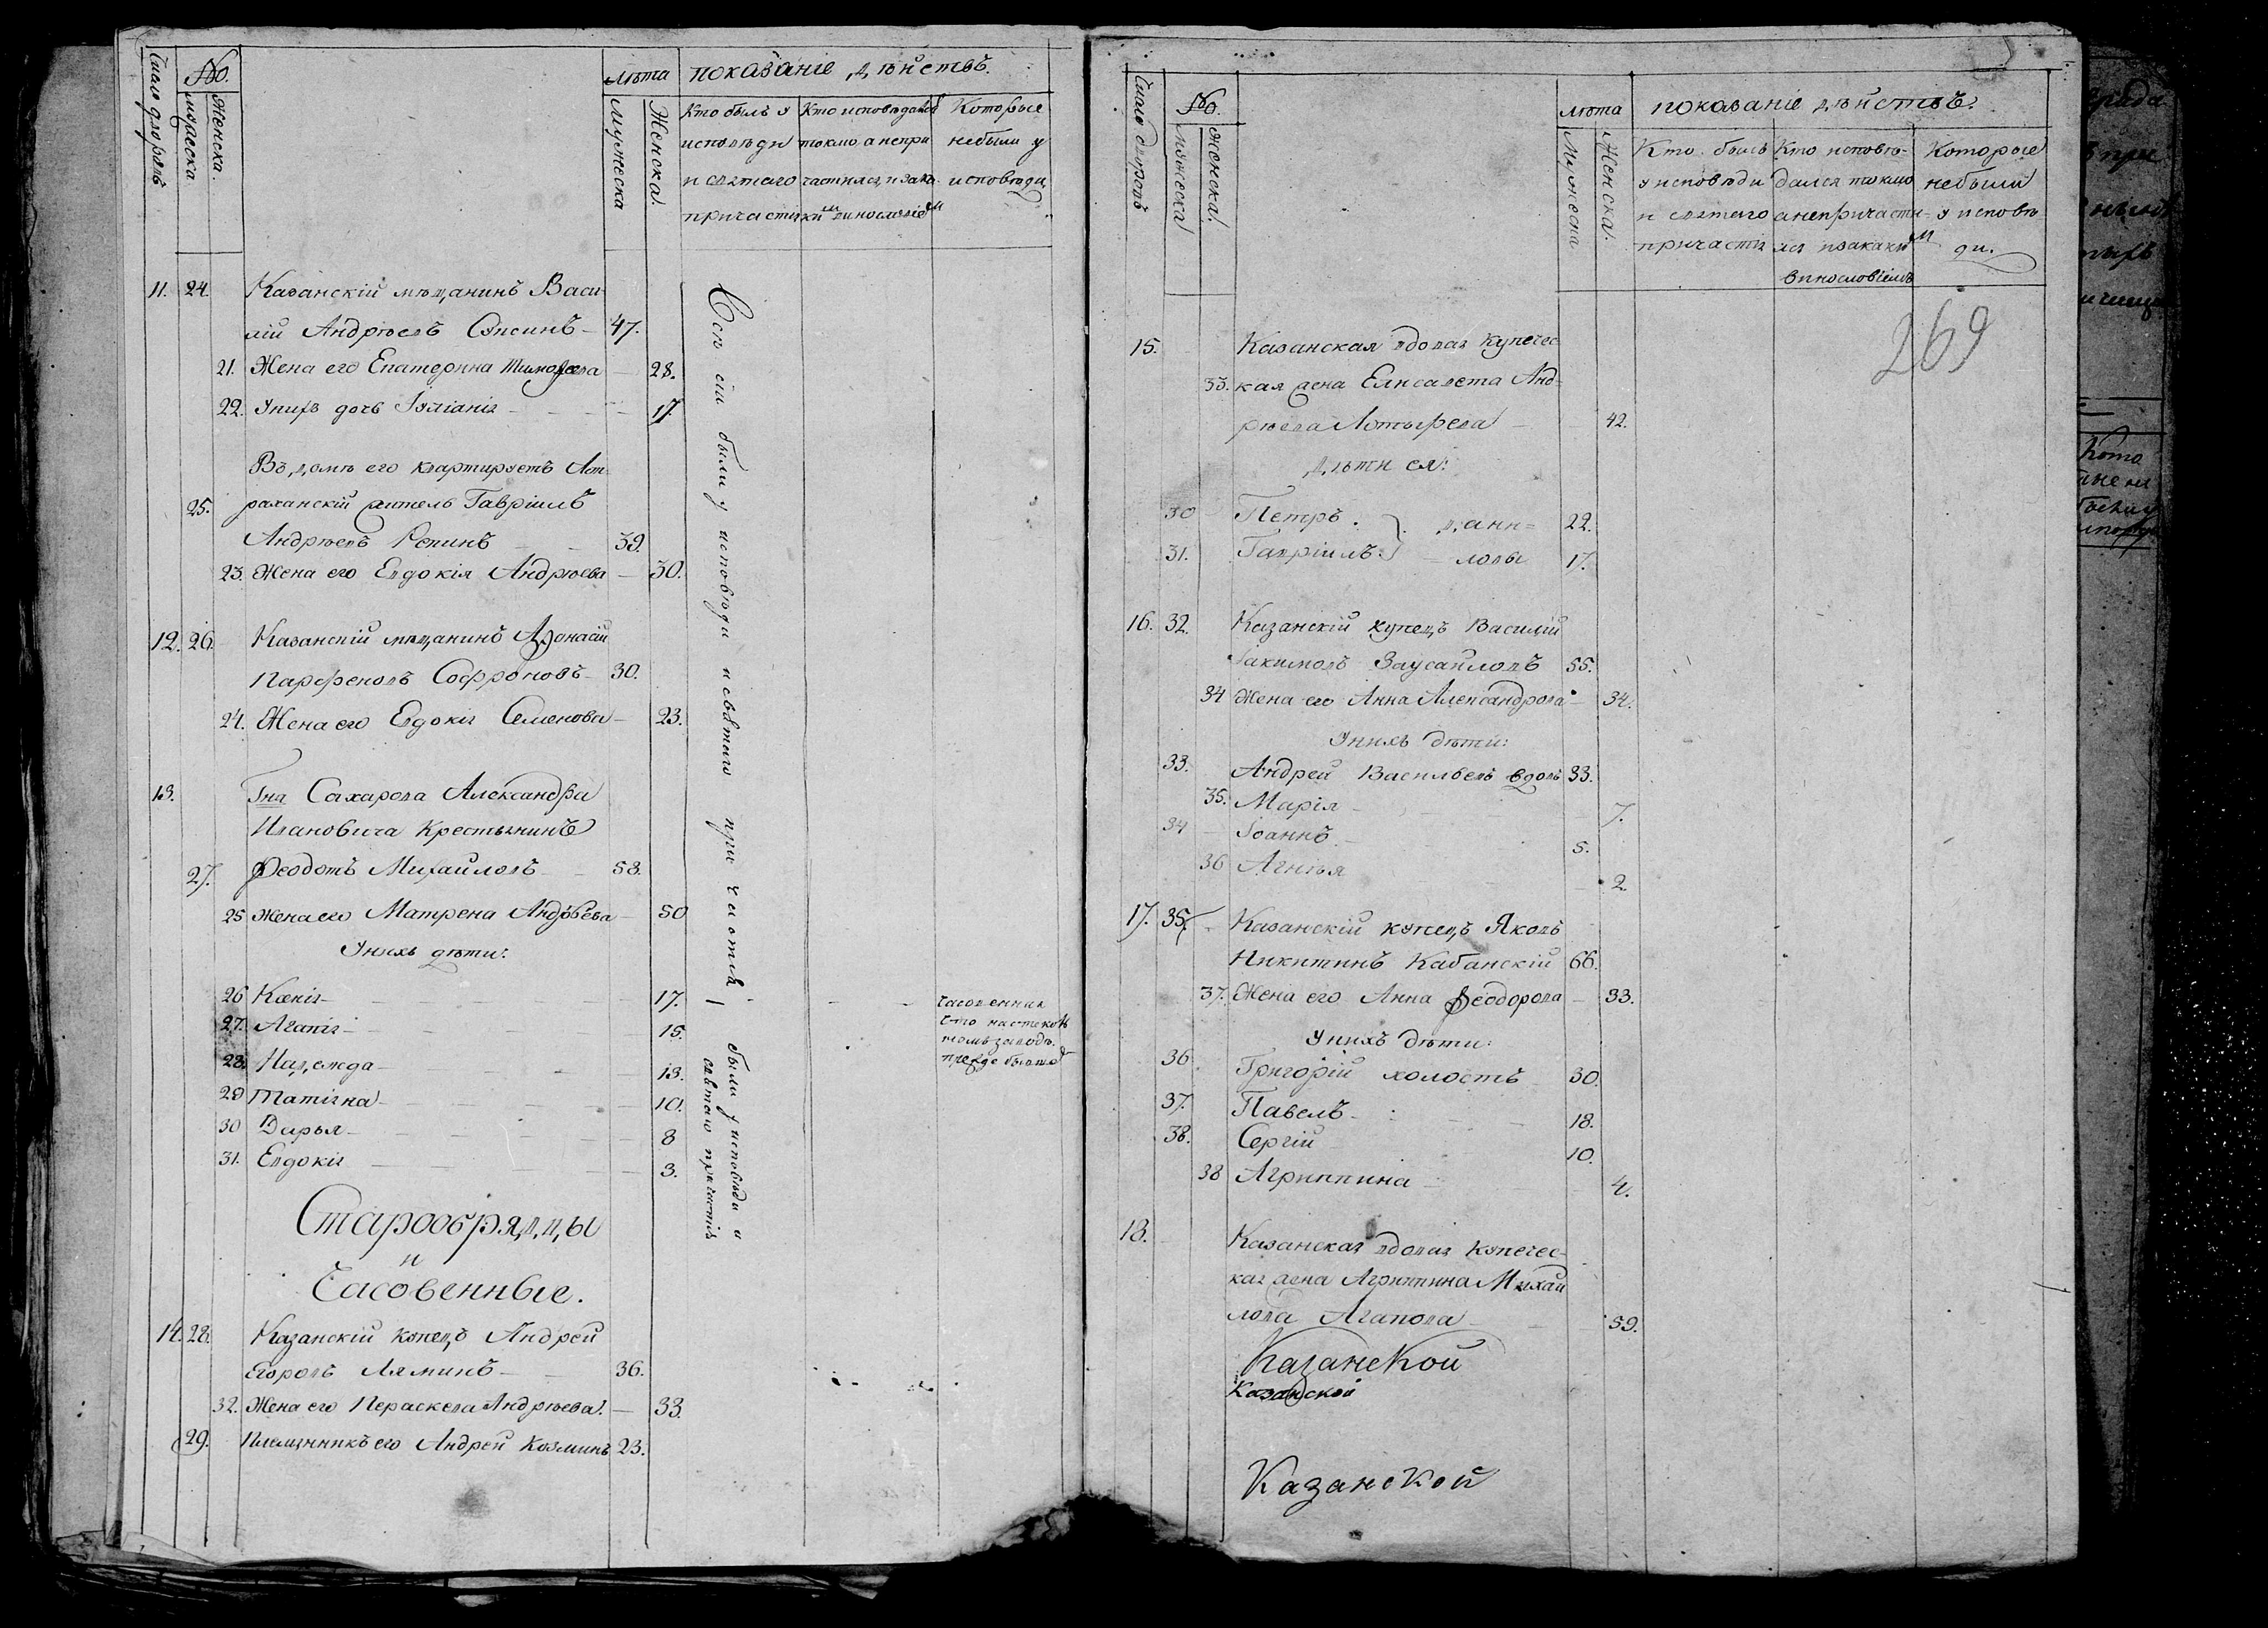 Число дворовъ
No.
мужеска
Женска.
лѣта
Мужеска
Женска.
показаніе дѣйствъ.
Кто былъ у исповѣди и святаго причастия
Кто исповѣдался токмо а непричастился, и за какимъ винословіемъ
Которые небыли у исповѣди
11. 24. Казанскій мѣщанинъ Васи-
лій Андреевъ 47.
21. Жена его Екатерина Тимофеева 28.
22. Унихъ дочь Іуліанія 17.
Въ домѣ его квартируетъ Аст-
25. раханскій житель Гавріилъ
Андреевъ Репинъ 39.
23. Жена его Евдокія Андреева 30.
12. 26. Казанскій мѣщанинъ Афонасій
Парфеновъ Софроновъ 30.
24. Жена его Евдокія Семенова 23.
13. Гна Сахарова Александра
Ивановича Крестьянинъ
27. Феодотъ Михайловъ 58.
25 Жена его Матрена Андреева 50
Унихъ дѣти:
26 Ксенія 17.
27. Агапія 15.
28. Надежда 13.
29 Татіяна 10.
30 Дарья 8
31. Евдокія 3.
Все сіи были у исповѣди и святаго причастія
были у исповѣди и
святаго причастія
Старообрядцы
и
Часовенные.
14. 28. Казанскій купецъ Андрей
Егоровъ Ляминъ 36.
32. Жена его Параскева Андреева. 33.
29. Племянникъ его Андрей Козминъ 23.
Число дворовъ
No.
Мужеска
Женска.
лѣта
Мужеска
Женска.
показаніе дѣйствъ.
Кто былъ у исповѣди и святаго причастія
Кто исповѣдался токмо а непричастился и за какимъ винословіемъ
Которые небыли у исповѣди.
269
15. Казанская вдовая купечес-
33. кая жена Елисавета Анд-
реева Лотырева 42.
дѣти ея:
30 Петръ. 22.
31. Гавріилъ. 17.
16. 32. Казанскій купецъ Василій
Іакимовъ Заусайловъ 55.
34 Жена его Анна Александрова 34.
Унихъ дѣти:
33. Андрей Васильевъ вдовъ 33.
35. Марія 7.
34 Іоаннъ 5.
36 Агнія 2.
17. 35. Казанскій купецъ Яковъ
Никитинъ Кабанскій 66.
37. Жена его Анна Феодорова 33.
Унихъ дѣти:
36 Григорій холостъ 30.
37. Павелъ 18.
38. Сергій 10.
38 Агриппина 4.
18. Казанская вдовая купечес-
кая жена Агриппина Михай
лова Агапова 59.
Казанской
Казанской
Казанской